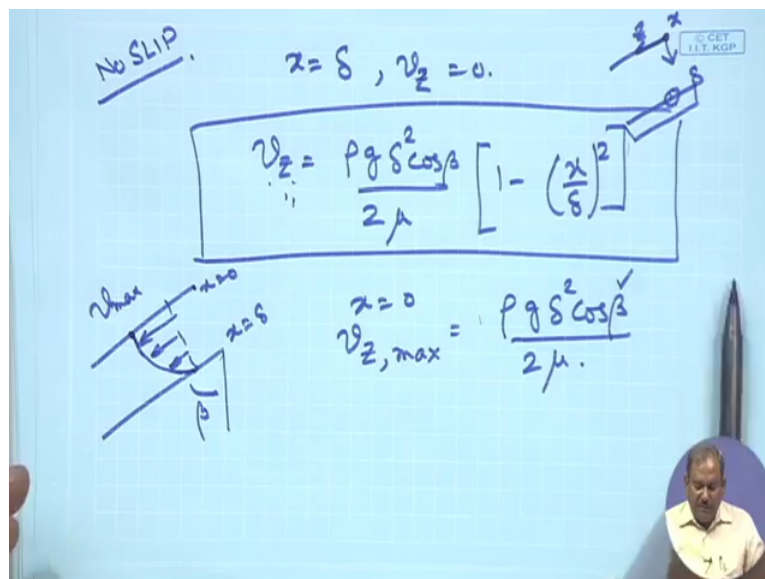 NO SLIP.
x = δ , v_z = 0.
z x
© CET
I.I.T. KGP
δ
v_z = ρ g δ² cosβ / 2 μ [ 1 - (x/δ)² ]
v_max
x=0
x=δ
β
x = 0
v_z, max = ρ g δ² cosβ / 2 μ.